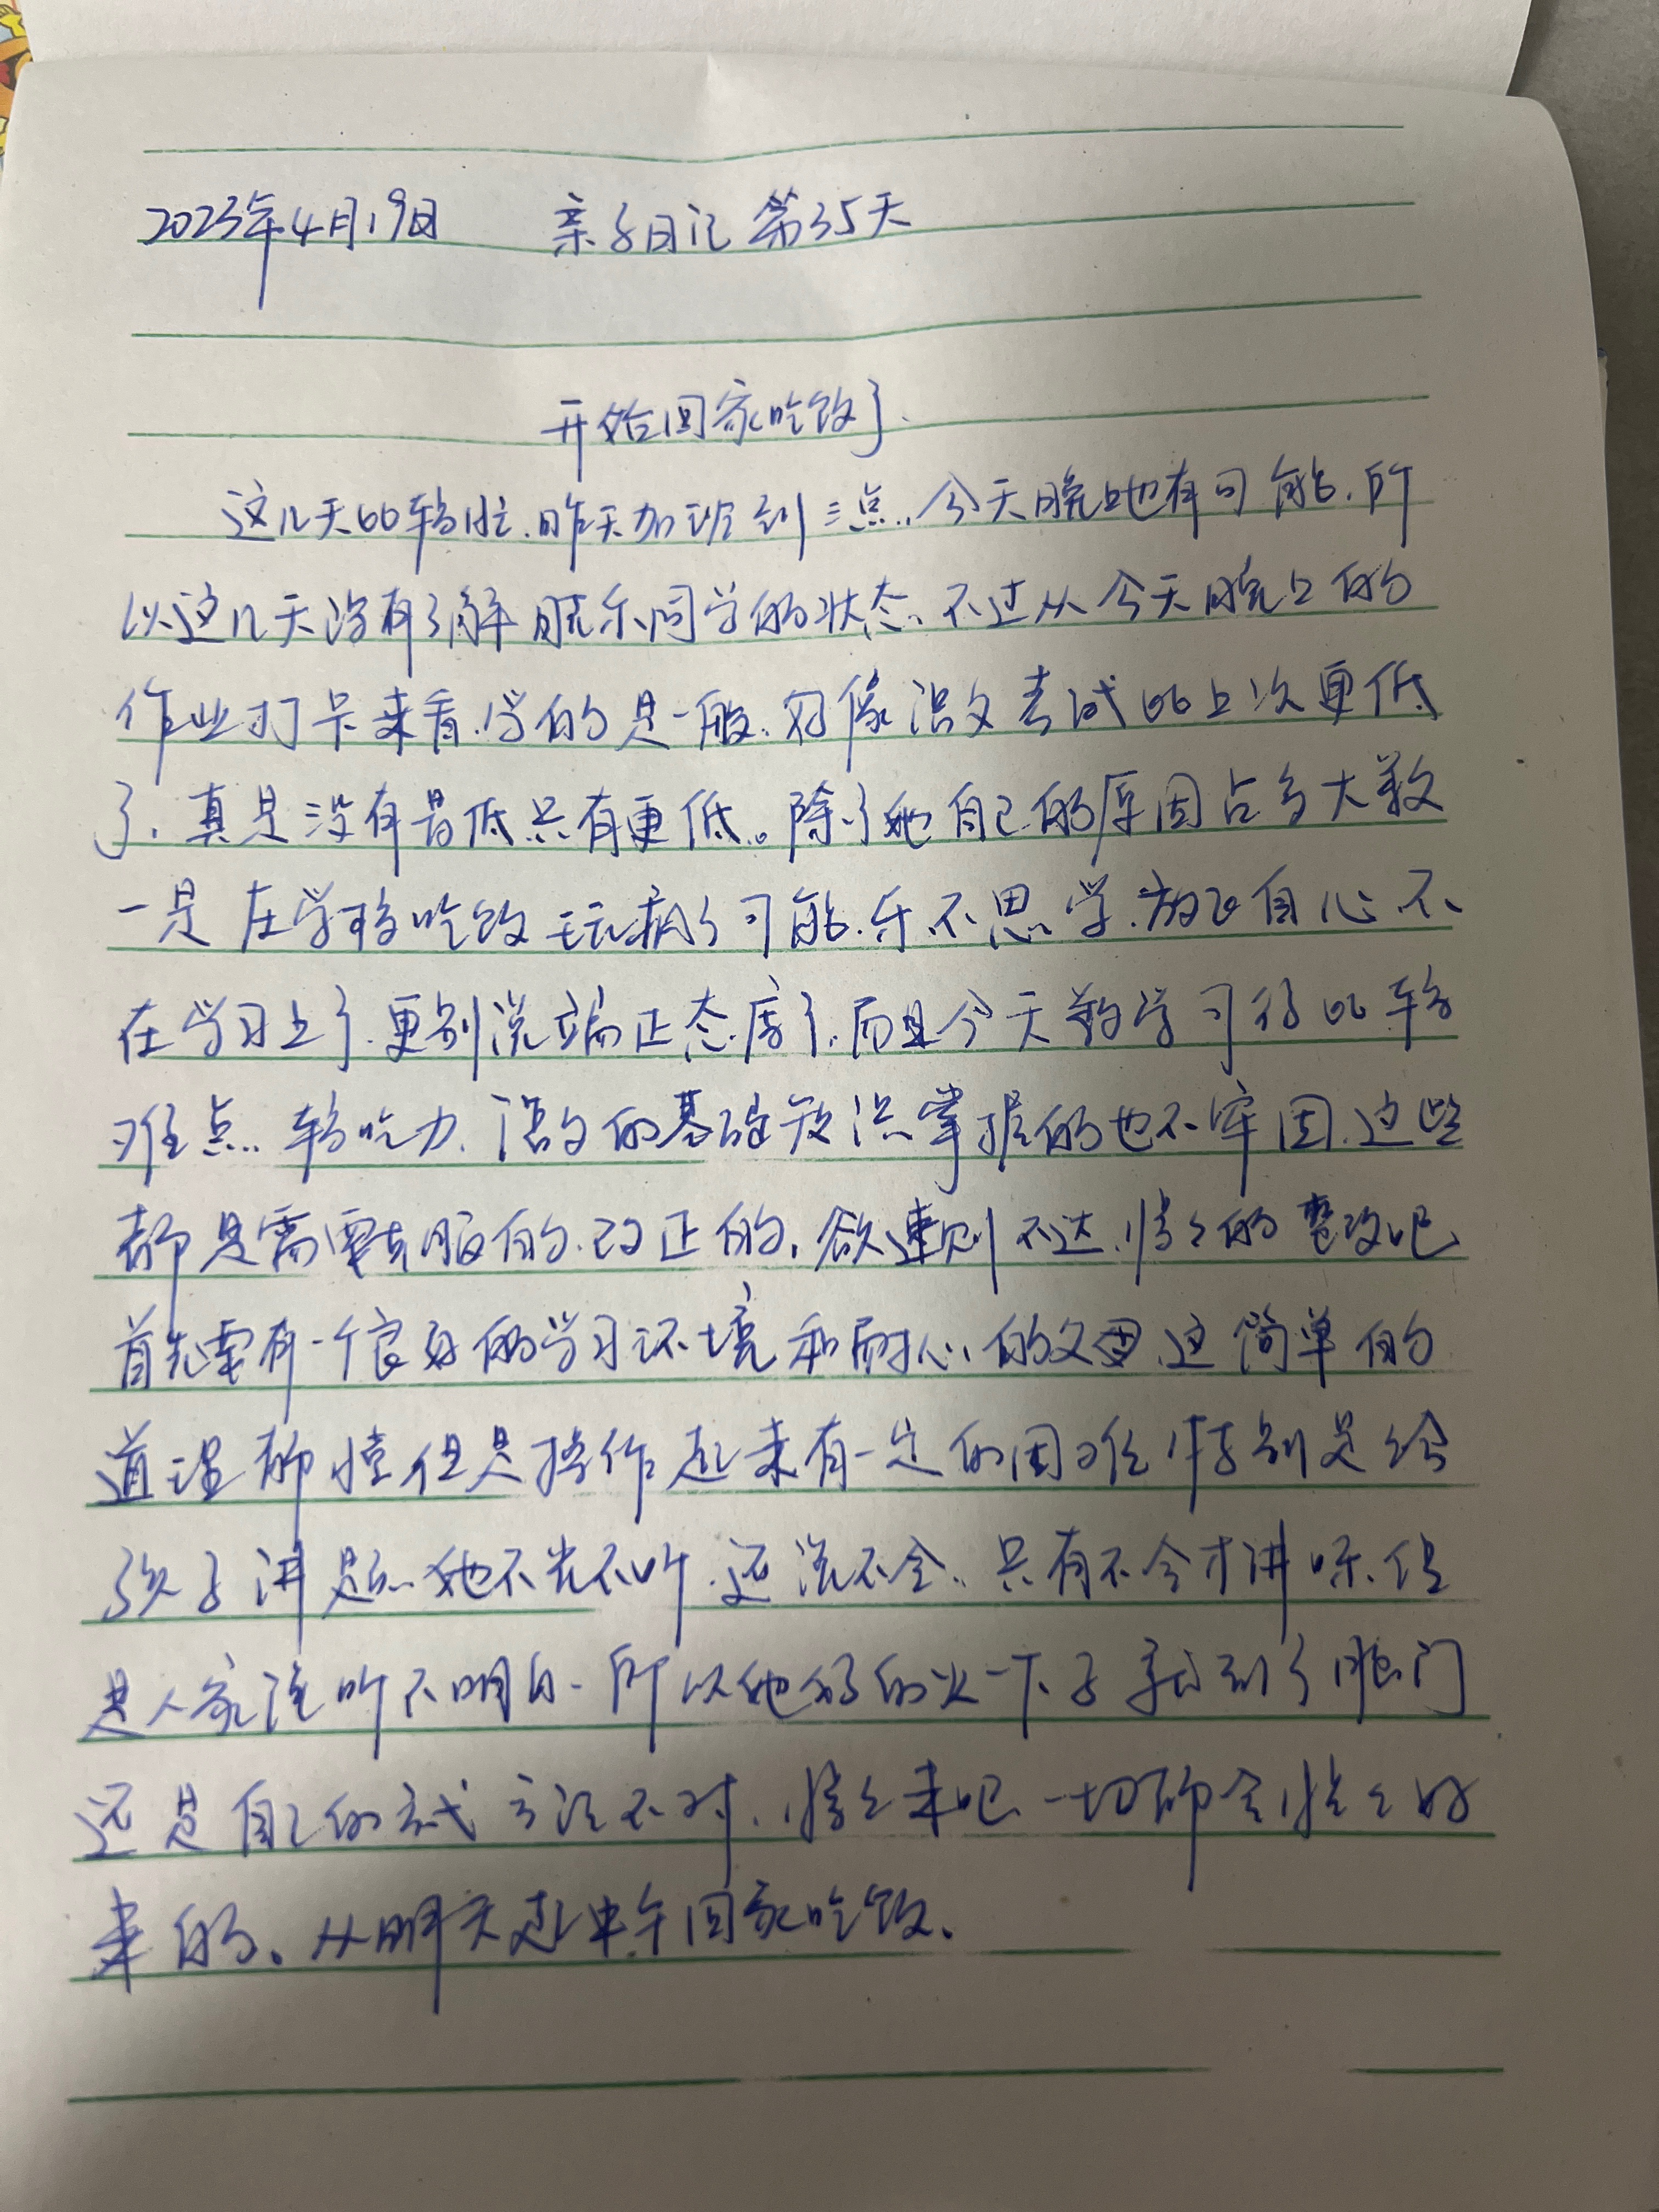 2023年4月19日 亲子日记 第35天
开始回家吃饭了.
这几天比较忙.昨天加班到三点..今天晚上也有可能.所
以这几天没有了解脱乐同学的状态.不过从今天晚上的
作业打卡来看.学的是一般.好像语文考试比上次更低
了.真是没有最低只有更低。除了她自己的原因占多大数
一是在学校吃饭玩疯了可能.乐不思学.放飞自心不
在学习上了.更别说端正态度了.而且今天数学习得比较
难点..较吃力.语文的基础知识掌握的也不牢固.这些
都是需要克服的.改正的.欲速则不达.慢々的整改吧
首先要有一个良好的学习环境和耐心的父母.这简单的
道理都懂但是操作起来有一定的困难特别是给
孩子讲题.她不光不听.还说不会..只有不会才讲嘛.但
是人家说听不明白.所以她爸的火一下子就到了脑门
还是自己的方式方法不对.慢々来吧一切都会慢々好
来的。从明天起中午回家吃饭.